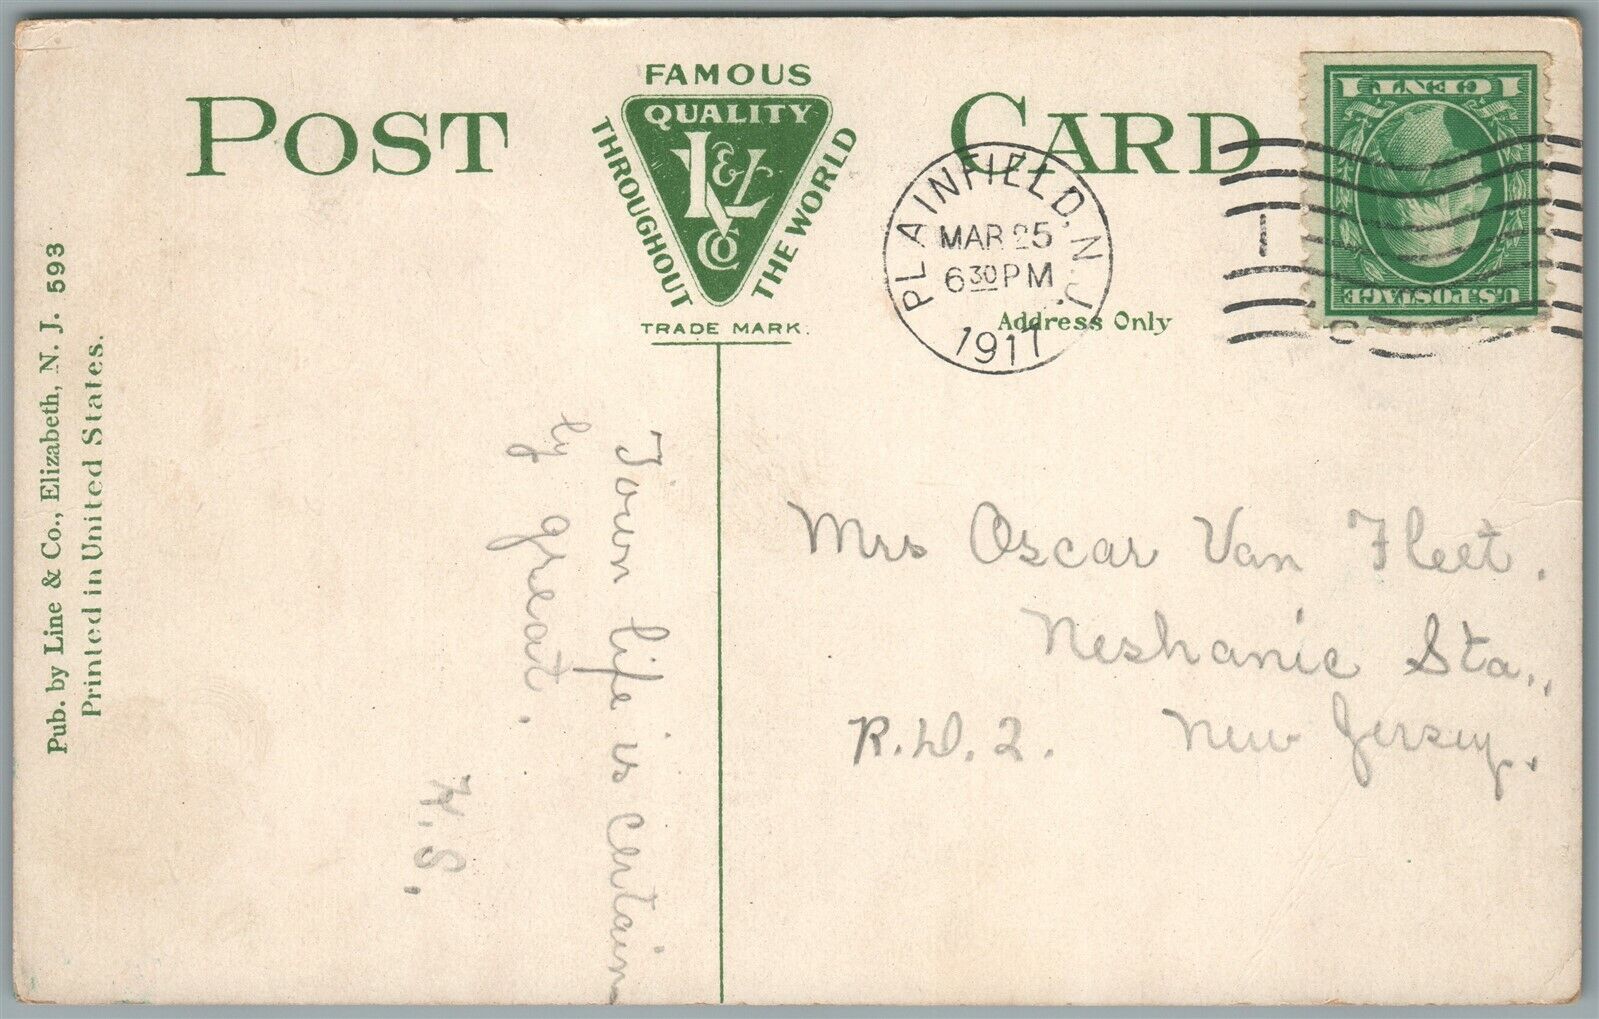 POST CARD
FAMOUS
QUALITY
THROUGHOUT
THE WORLD
L & Co
TRADE MARK.
Address Only
PLAINFIELD, N.J.
MAR 25
6 30 PM
1917
1 CENT 1
U.S. POSTAGE
Pub. by Line & Co., Elizabeth, N. J. 593
Printed in United States.
Town life is certain
ly great.
H.S.
Mrs Oscar Van Fleet.
Neshanic Sta.,
R.D.2. New Jersey.